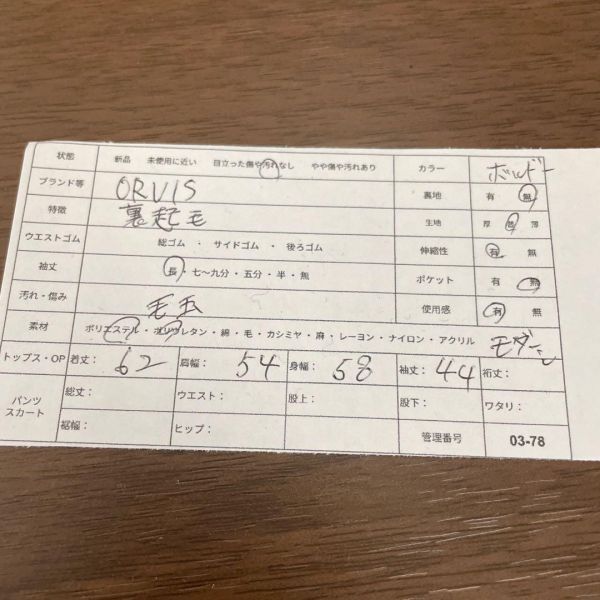 状態 新品 未使用に近い 目立った傷や汚れなし やや傷や汚れあり カラー ボルドー
ブランド等 ORVIS 裏地 有 無
特徴 裏起毛 生地 厚 普 薄
ウエストゴム 総ゴム ・ サイドゴム ・ 後ろゴム 伸縮性 有 無
袖丈 長・七〜九分・五分・半・無 ポケット 有 無
汚れ・傷み 毛玉 使用感 有 無
素材 ポリエステル・ポリウレタン・綿・毛・カシミヤ・麻・レーヨン・ナイロン・アクリル
トップス・OP 着丈: 62 肩幅: 54 身幅: 58 袖丈: 44 裄丈:
パンツ スカート 総丈: ウエスト: 股上: 股下: ワタリ:
裾幅: ヒップ: 管理番号 03-78